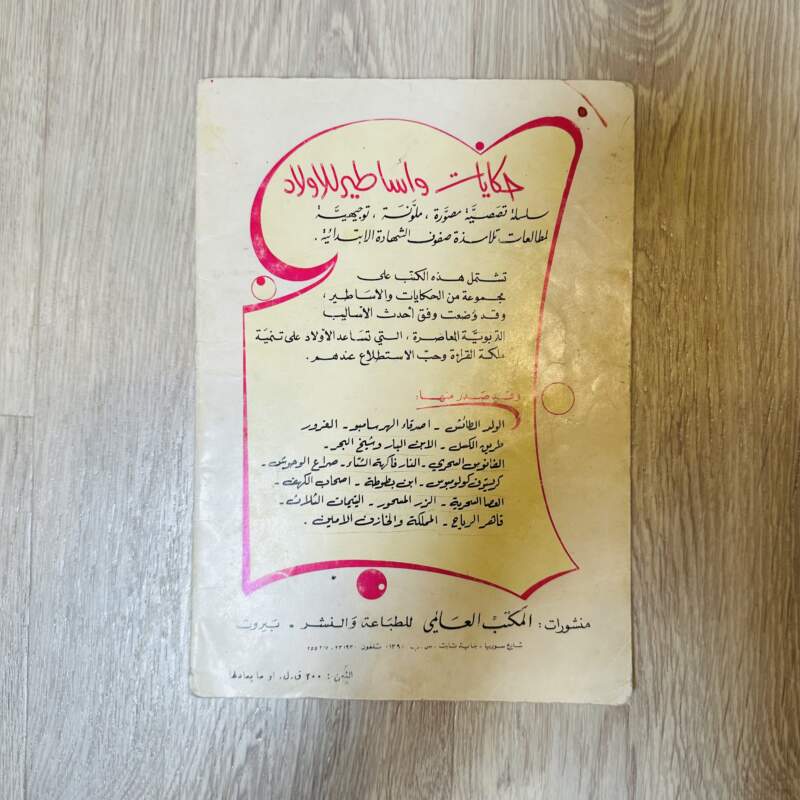 حكايات وأساطير للاولاد
سلسلة قصصيَّة مصوَّرة ، ملوَّنَة ، توجيهيَّة
لمطالعات تلامذة صفوف الشهادة الابتدائية .
تشتمل هذه الكتب على
مجموعة من الحكايات والاساطير ،
وقد وُضعت وفق أحدث الأساليب
التربويَّة المعاصرة ، التي تسَاعد الأولاد على تنميَة
ملكة القراءة وحبّ الاستطلاع عندهم .
وقد صدر منها :
الولد الطائش - اصدقاء الهر سامبو - الغرور
طريق الكسل - الابن البار وشيخ البحر -
الفانوس السحري - النار فاكهة الشتاء - صراع الوحوش -
كريستوف كولومبوس - ابن بطوطة - اصحاب الكهف -
العصا السحرية - الزر المسحور - اليتيمات الثلاث -
قاهر الرياح - المملكة والخازن الامين .
منشورات : المكتب العَالمي للطبَاعة وَالنشر - بَيروت
شارع سوريا ، بناية ثابت ، ص. ب ، تلفون
الثمن : ٢٠٠ ق.ل. او ما يعادلها